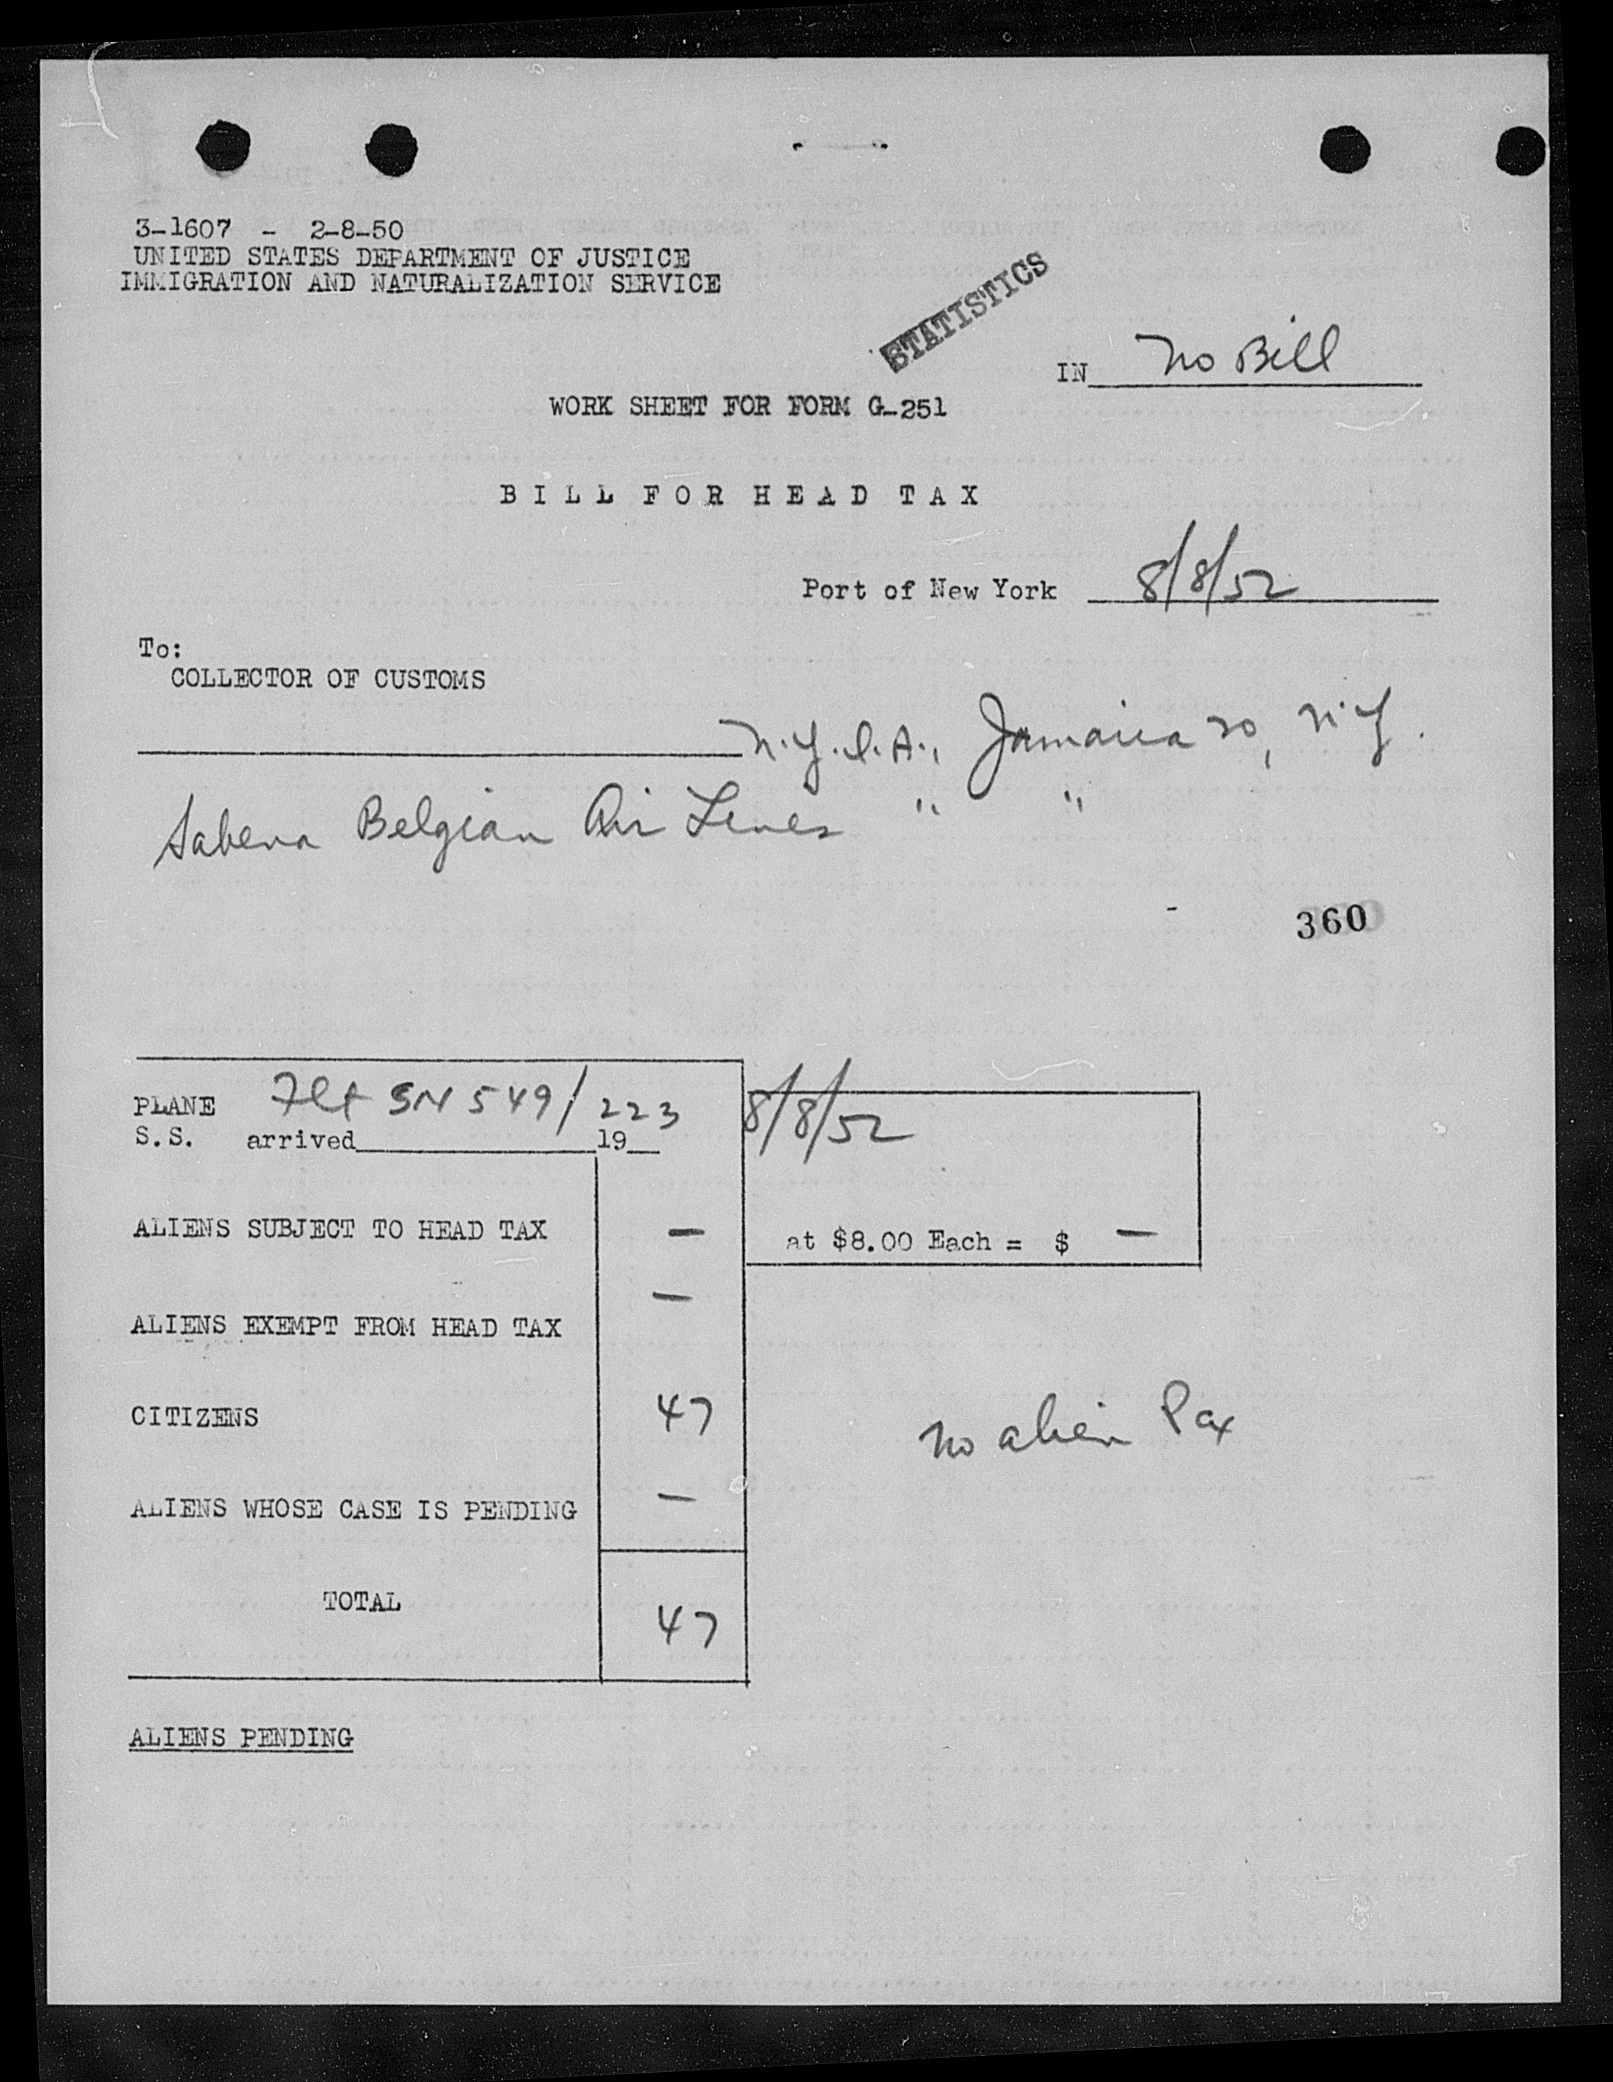 3-1607 - 2-8-50
UNITED STATES DEPARTMENT OF JUSTICE
IMMIGRATION AND NATURALIZATION SERVICE
STATISTICS
IN No Bill
WORK SHEET FOR FORM G-251
BILL FOR HEAD TAX
Port of New York 8/8/52
To:
COLLECTOR OF CUSTOMS
N.Y.I.A., Jamaica 20, N.Y.
Sabena Belgian Air Lines " "
360
PLANE Flt SN 549/223 8/8/52
S.S. arrived 19
ALIENS SUBJECT TO HEAD TAX — at $8.00 Each = $ —
ALIENS EXEMPT FROM HEAD TAX —
CITIZENS 47 No alien Pax
ALIENS WHOSE CASE IS PENDING —
TOTAL 47
ALIENS PENDING